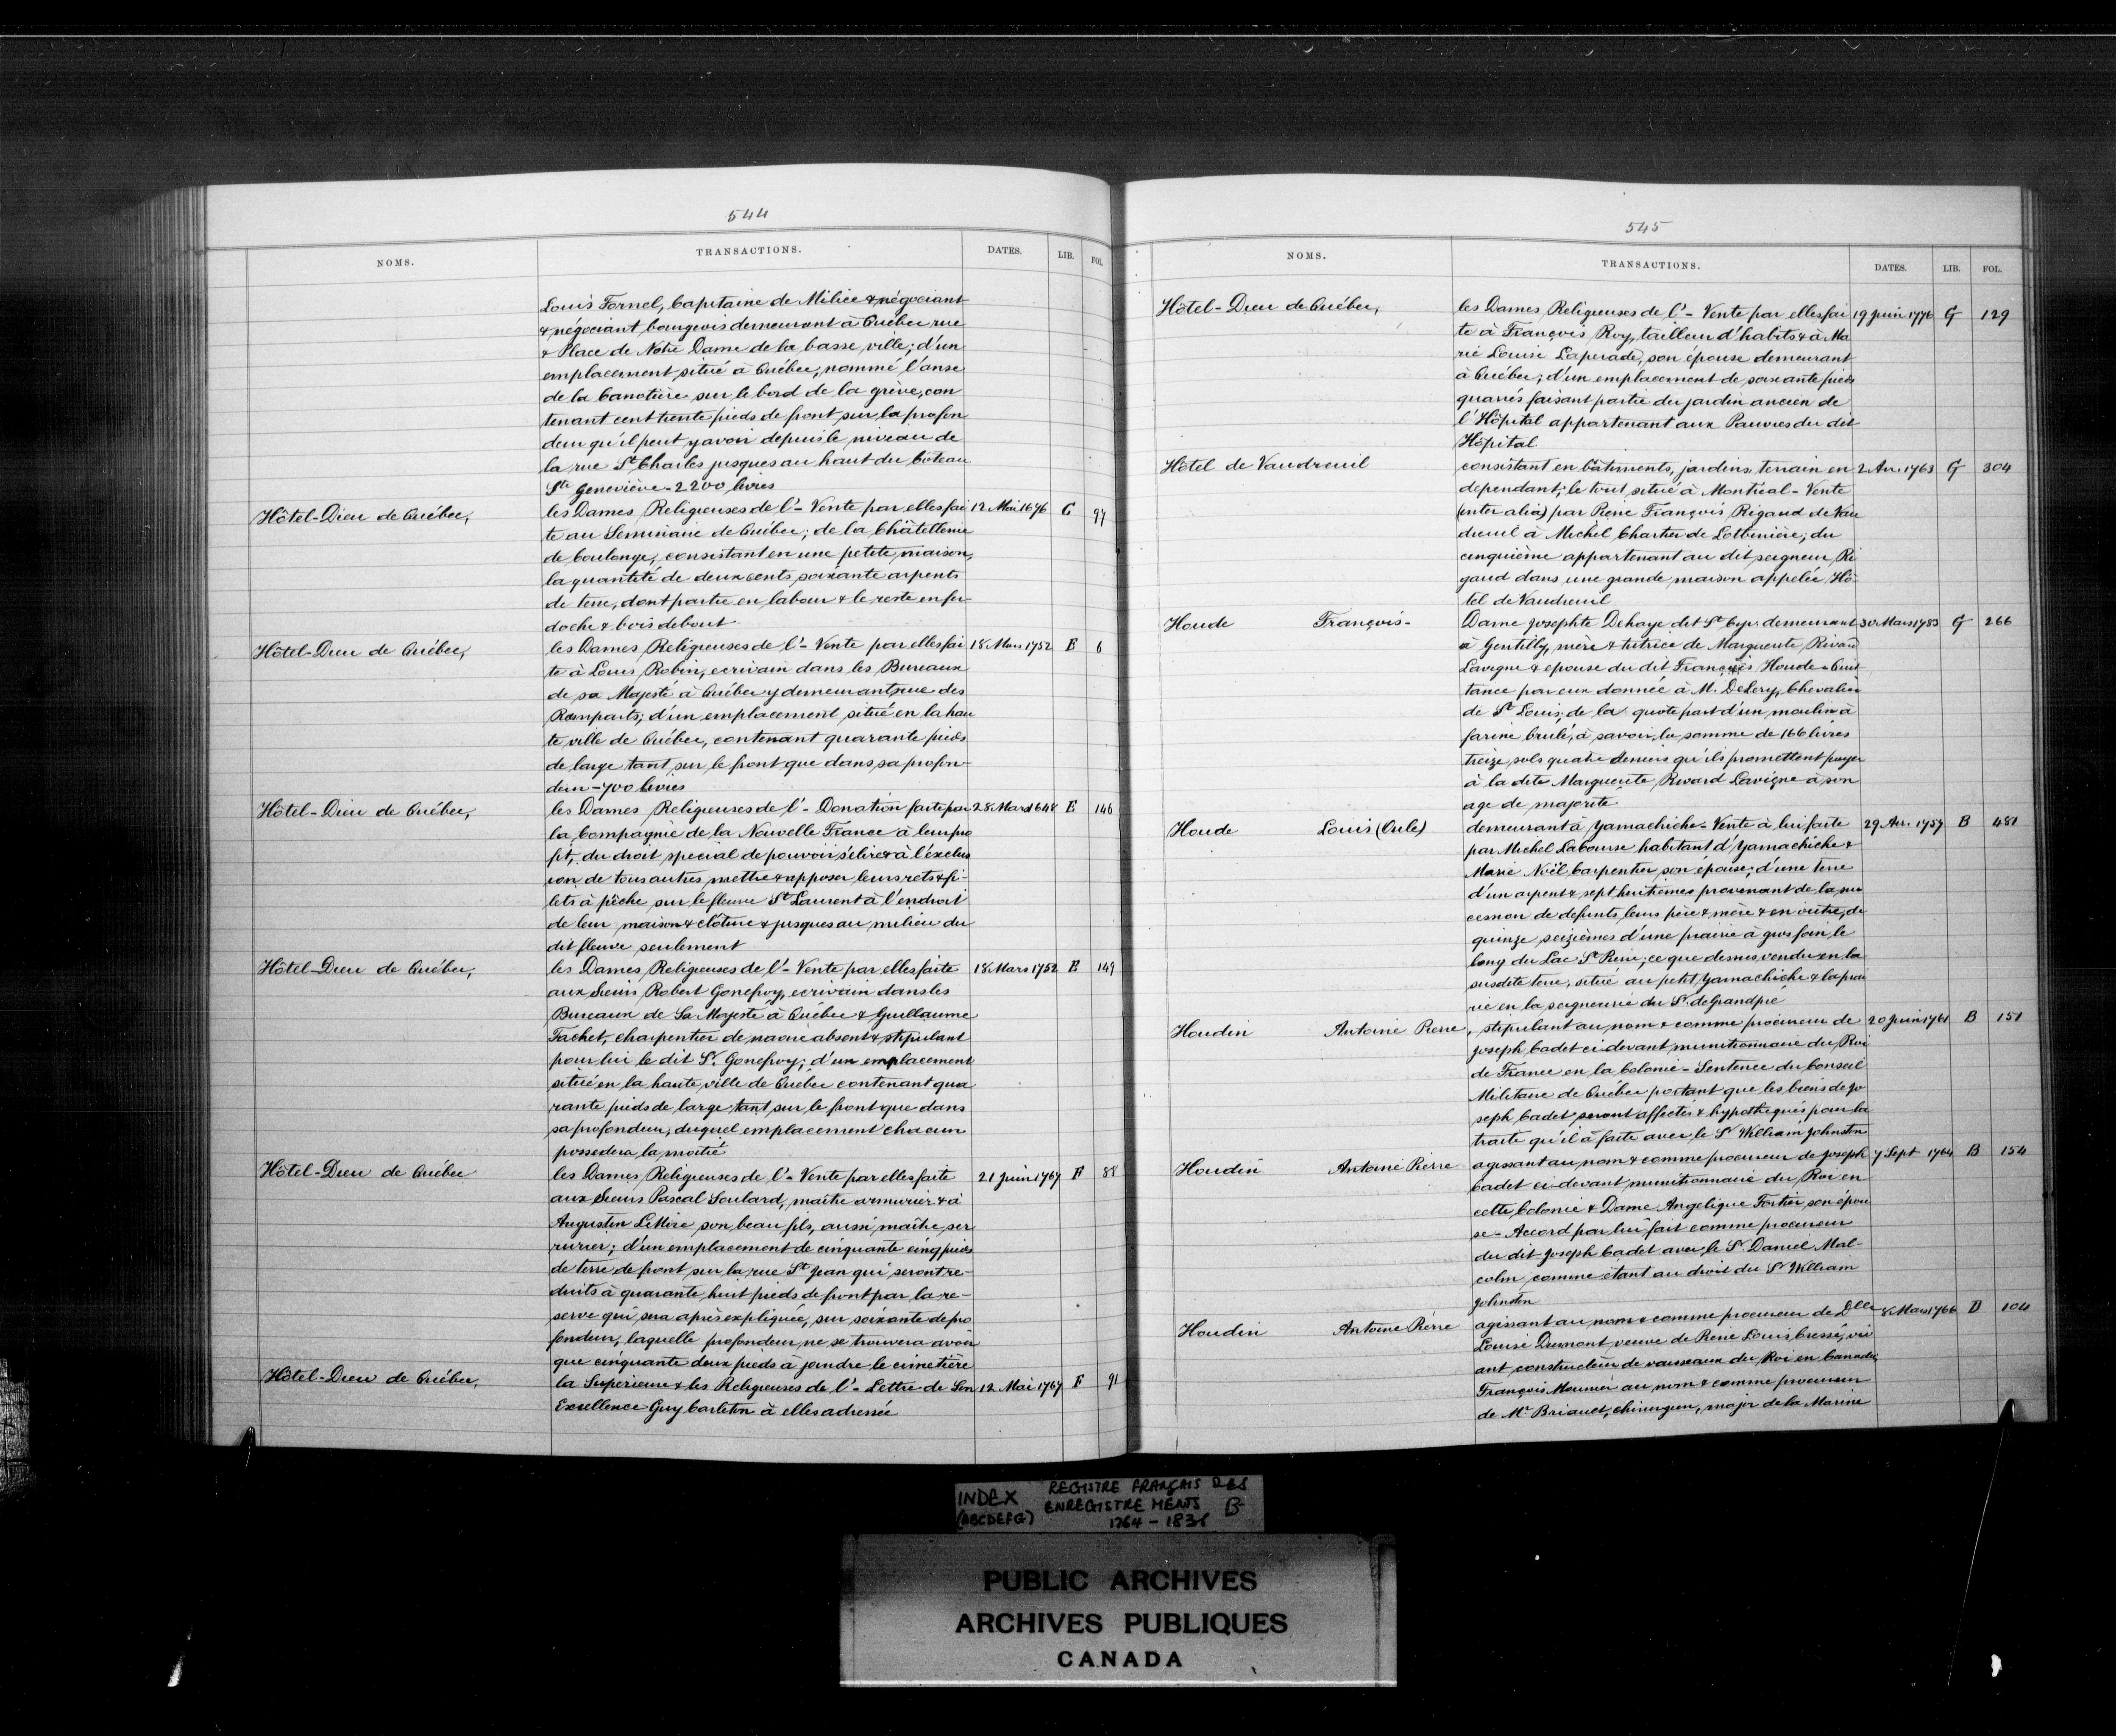 544
NOMS. TRANSACTIONS. DATES. LIB. FOL.
Louis Fornel, Capitaine de Milice & négociant
& négociant bourgeois demeurant à Québec rue
& Place de Notre Dame de la basse ville; d'un
emplacement situé à Québec, nommé l'anse
de la Canotière sur le bord de la grève, con
tenant cent trente pieds de front sur la profon
deur qu'il peut y avoir depuis le niveau de
la rue St Charles jusques au haut du Côteau
Ste Geneviève - 2200 livres
Hôtel-Dieu de Québec, les Dames Religieuses de l'- Vente par elles fai 12 Mai 1676 C 97
te au Seminaire de Québec; de la Châtellenie
de Coulonge, consistant en une petite maison,
la quantité de deux cents soixante arpents
de terre, dont partie en labour & le reste en fer-
doche & bois debout
Hôtel-Dieu de Québec, les Dames Religieuses de l'- Vente par elles fai 18 Mars 1752 E 6
te à Louis Robin, ecrivain dans les Bureaux
de sa Majesté à Québec y demeurant rue des
Remparts; d'un emplacement situé en la hau
te ville de Québec, contenant quarante pieds
de large tant sur le front que dans sa profon-
deur - 700 livres
Hôtel-Dieu de Québec, les Dames Religieuses de l'- Donation faite par 28 Mars 1648 E 146
la Compagnie de la Nouvelle France à leur pro
fit, du droit special de pouvoir s'elire & à l'exclus
ion de tous autres mettre & apposer leurs rets & fi-
lets à pêche sur le fleuve St Laurent à l'endroit
de leur maison & clôture & jusques au milieu du
dit fleuve seulement
Hôtel-Dieu de Québec, les Dames Religieuses de l'- Vente par elles faite 18 Mars 1752 E 149
aux Sieurs Robert Gonefroy, ecrivain dans les
Bureaux de Sa Majesté à Québec & Guillaume
Tachet, charpentier de navire absent & stipulant
pour lui le dit Sr. Gonefroy; d'un emplacement
situé en la haute ville de Québec contenant qua
rante pieds de large tant sur le front que dans
sa profondeur, duquel emplacement chacun
possedera la moitié
Hôtel-Dieu de Québec les Dames Religieuses de l'- Vente par elles faite 21 Juin 1767 F 88
aux Sieurs Pascal Soulard, maître armurier & à
Augustin LeMire son beau fils, aussi maître ser
rurier; d'un emplacement de cinquante cinq pieds
de terre de front sur la rue St Jean qui seront re-
duits à quarante huit pieds de front par la re-
serve qui sera après expliquée, sur soixante de pro
fondeur, laquelle profondeur ne se trouvera avoir
que cinquante deux pieds à joindre le cimetière
Hôtel-Dieu de Québec, la Superieure & les Religieuses de l'- Lettre de Son 12 Mai 1767 F 91
Excellence Guy Carleton à elles adressée
545
NOMS. TRANSACTIONS. DATES. LIB. FOL.
Hôtel-Dieu de Québec, les Dames Religieuses de l'- Vente par elles fai 19 Juin 1776 G 129
te à François Roy, tailleur d'habits & à Ma
rie Louise Laperade, son épouse demeurant
à Québec; d'un emplacement de soixante pieds
quarrés faisant partie du jardin ancien de
l'Hôpital appartenant aux Pauvres du dit
Hôpital
Hôtel de Vaudreuil consistant en bâtiments, jardins, terrain en 2 Avr. 1763 G 304
dependant; le tout situé à Montréal - Vente
(inter alia) par René François Rigaud de Vau
dreuil à Michel Chartier de Lotbinière; du
cinquième appartenant au dit seigneur Ri
gaud dans une grande maison appelée Hô-
tel de Vaudreuil
Houde François- Dame Josephte Dehaye dit St Cyr. demeurant 30 Mars 1783 G 266
à Gentilly, mère & tutrice de Marguerite Rivard
Lavigne & epouse du dit François Houde - Quit
tance par eux donnée à M. DeLery, Chevalier
de St Louis; de la quote part d'un moulin à
farine brulé, à savoir, la somme de 166 livres
treize sols quatre deniers qu'ils promettent payer
à la dite Marguerite Rivard Lavigne à son
age de majorité
Houde Louis (Oule) demeurant à Yamachiche - Vente à lui faite 29 Avr. 1759 B 481
par Michel Lacourse habitant d'Yamachiche &
Marie Noël Carpentier son épouse; d'une terre
d'un arpent & sept huitiemes provenant de la suc
cession de defunts leurs père & mère & en outre, de
quinze seizièmes d'une prairie à gros foin le
long du Lac St Pierre; ce que dessus vendu en la
susdite terre, situé au petit Yamachiche & la prai
rie en la seigneurie du Sr. de Grandpré
Houdin Antoine Pierre, stipulant au nom & comme procureur de 20 Juin 1761 B 151
Joseph Cadet ci devant munitionnaire du Roi
de France en la Colonie - Sentence du Conseil
Militaire de Québec portant que les biens de Jo
seph Cadet seront affectés & hypothequés pour la
traite qu'il a faite avec le Sr William Johnston
Houdin Antoine Pierre agissant au nom & comme procureur de Joseph 7 Sept 1764 B 154
Cadet ci devant munitionnaire du Roi en
cette Colonie & Dame Angelique Fortier son épou
se - Accord par lui fait comme procureur
du dit Joseph Cadet avec le Sr. Daniel Mal-
colm comme étant au droit du Sr William
Johnston
Houdin Antoine Pierre agissant au nom & comme procureur de Dlle 8 Mars 1766 D 104
Louise Dumont veuve de René Louis Cressé, viv
ant constructeur de vaisseaux du Roi en Canada;
François Meunier au nom & comme procureur
de Mr Briault, chirurgien, major de la Marine
INDEX (ABCDEFG)
REGISTRE FRANÇAIS DES
ENREGISTREMENTS B
1764 - 1836
PUBLIC ARCHIVES
ARCHIVES PUBLIQUES
CANADA